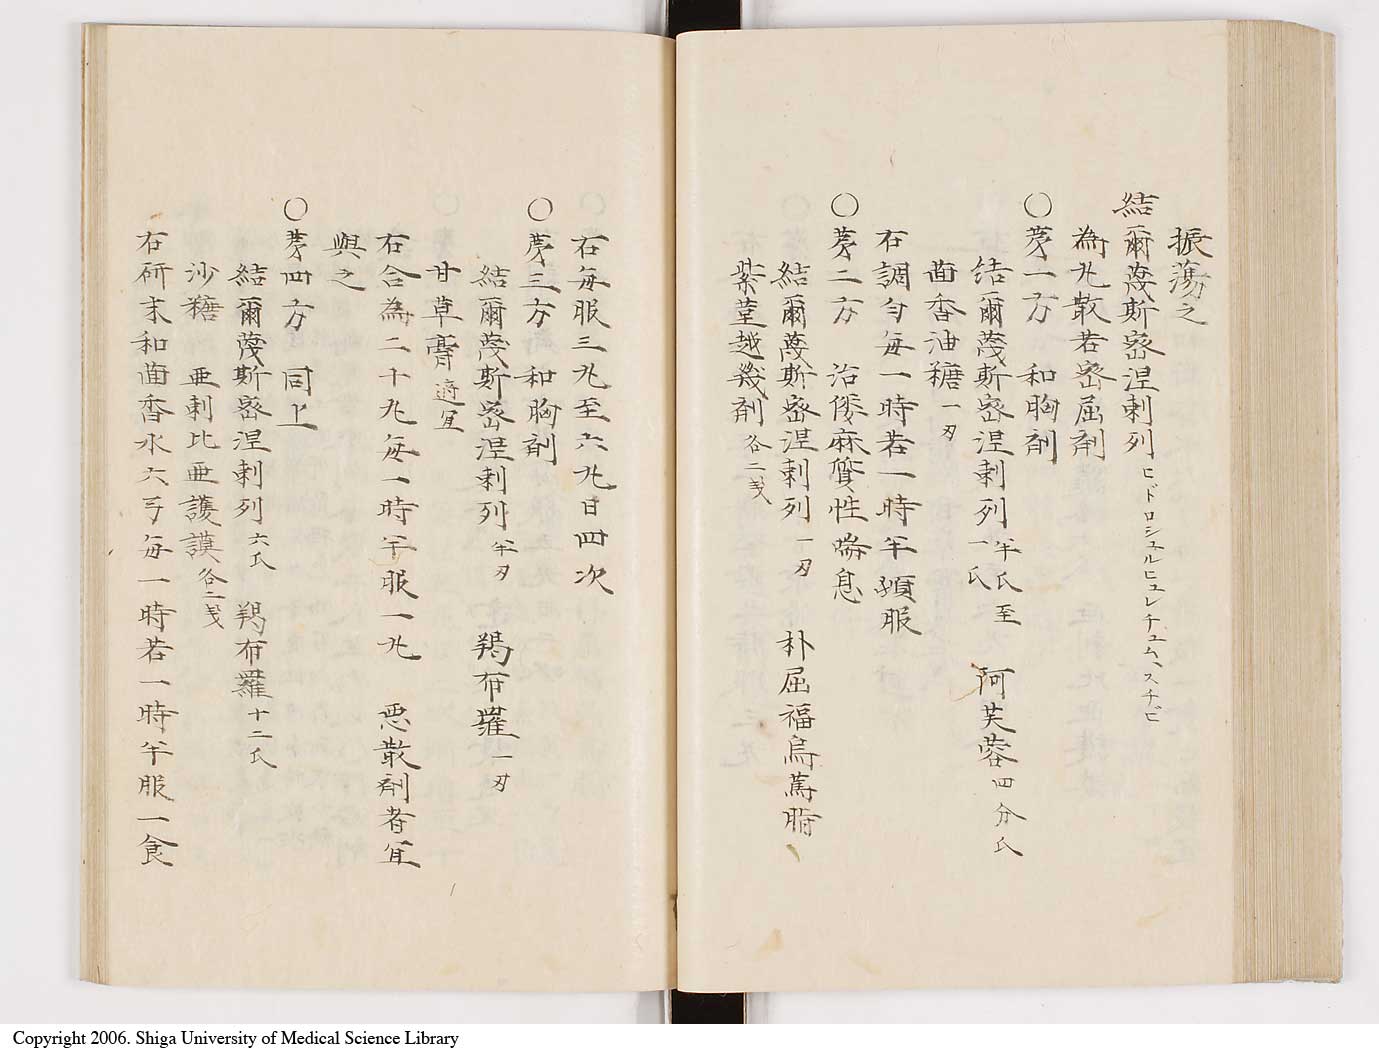 振蕩之
結爾蔑斯密涅剌列 ヒドロシュルヒュレチュム、スチヒ
為丸散若密屈剤
〇第一方 和胸剤
結爾蔑斯密涅剌列 半氏至一氏 阿芙蓉 四分氏
茴香油糖 一刃
右調匀毎一時若一時半頓服
〇第二方 治僂麻質性喘息
結爾蔑斯密涅剌列 一刃 朴屈福烏篤脂
紫菫越幾剤 各二戔
右毎服三丸至六丸日四次
〇第三方 和胸剤
結爾蔑斯密涅剌列 半刃 羯布羅 一刃
甘草膏 適宜
右合為二十丸毎一時半服一丸 悪散剤者宜
與之
〇第四方 同上
結爾蔑斯密涅剌列 六氏 羯布羅 十二氏
沙糖 亜剌比亜護謨 各二戔
右研末和茴香水六弓毎一時若一時半服一食
Copyright 2006. Shiga University of Medical Science Library